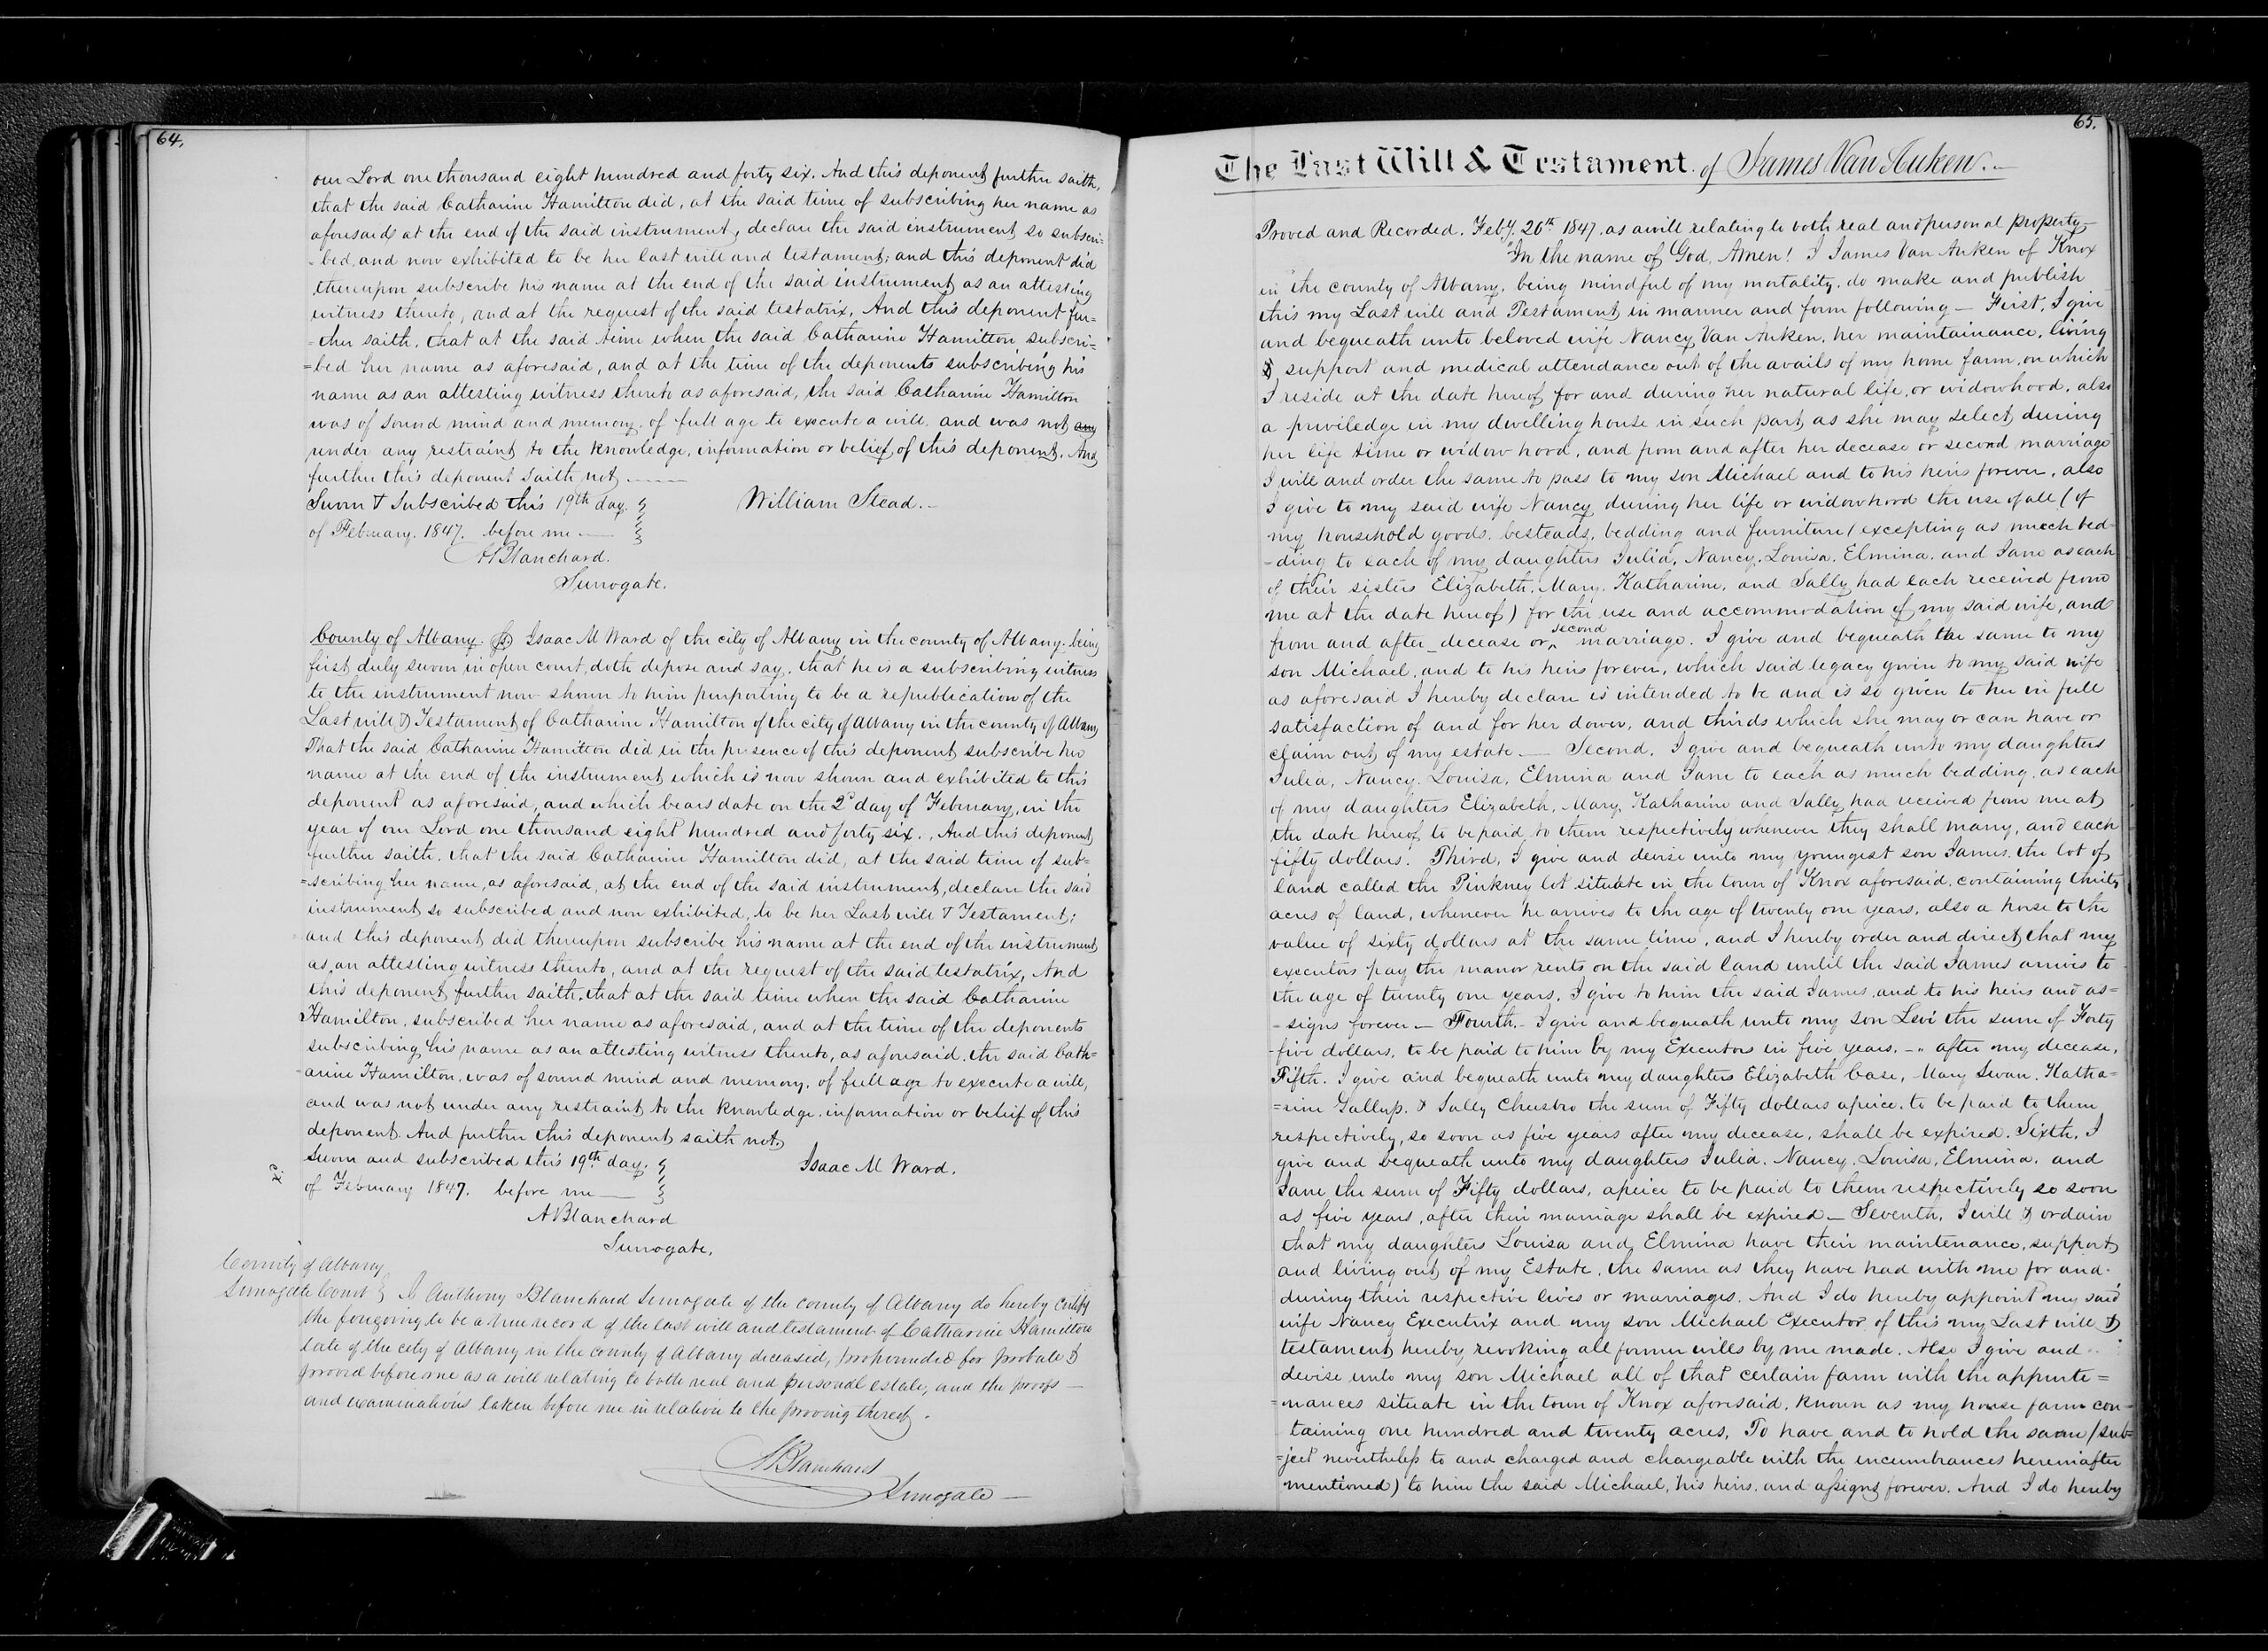 64.
our Lord one thousand eight hundred and forty six. And this deponent further saith,
that the said Catharine Hamilton did, at the said time of subscribing her name as
aforesaid at the end of the said instrument, declare the said instrument so subscri=
=bed, and now exhibited to be her last will and testament; and this deponent did
thereupon subscribe his name at the end of the said instrument as an attesting
witness thereto, and at the request of the said testatrix. And this deponent fur=
=ther saith, that at the said time when the said Catharine Hamilton subscri=
=bed her name as aforesaid, and at the time of the deponents subscribing his
name as an attesting witness thereto as aforesaid, the said Catharine Hamilton
was of sound mind and memory, of full age to execute a will, and was not any
under any restraint to the knowledge, information or belief, of this deponent. And
further this deponent saith not
Sworn & Subscribed this 19th day
of February. 1847. before me
William Stead.
A Blanchard.
Surrogate.
County of Albany. ss Isaac M Ward of the city of Albany in the county of Albany. being
first duly sworn in open court, doth depose and say, that he is a subscribing witness
to the instrument now shown to him purporting to be a republication of the
Last will & Testament of Catharine Hamilton of the city of Albany in the county of Albany
That the said Catharine Hamilton did in the presence of this deponent subscribe her
name at the end of the instrument which is now shown and exhibited to this
deponent as aforesaid, and which bears date on the 2d day of February, in the
year of our Lord one thousand eight hundred and forty six. And this deponent
further saith, that the said Catharine Hamilton did, at the said time of sub=
=scribing her name, as aforesaid, at the end of the said instrument, declare the said
instrument so subscribed and now exhibited, to be her Last will & Testament;
and this deponent did thereupon subscribe his name at the end of the instrument
as an attesting witness thereto, and at the request of the said testatrix, And
this deponent further saith, that at the said time when the said Catharine
Hamilton, subscribed her name as aforesaid, and at the time of the deponents
subscribing his name as an attesting witness thereto, as aforesaid, the said Cath=
=arine Hamilton, was of sound mind and memory, of full age to execute a will,
and was not under any restraint to the knowledge, information or belief of this
deponent. And further this deponent saith not,
Sworn and subscribed this 19th day.
of February 1847. before me
Isaac M Ward.
A Blanchard
Surrogate,
County of Albany
Surrogate Court I Anthony Blanchard Surrogate of the county of Albany do hereby certify
the foregoing to be a true record of the last will and testament of Catharine Hamilton
late of the city of Albany in the county of Albany deceased, propounded for probate &
proved before me as a will relating to both real and personal estate, and the proofs
and examinations taken before me in relation to the proving thereof.
A Blanchard
Surrogate
65.
The Last Will & Testament of James Van Auken.
Proved and Recorded. Feby. 26th 1847. as a will relating to both real and personal property
"In the name of God, Amen! I James Van Auken of Knox
in the county of Albany, being mindful of my mortality, do make and publish
this my Last will and Testament in manner and form following — First, I give
and bequeath unto beloved wife Nancy Van Auken, her maintainance, living
& support and medical attendance out of the avails of my home farm, on which
I reside at the date hereof for and during her natural life, or widowhood, also
a priviledge in my dwelling house in such part, as she may select, during
her life time or widow hood, and from and after her decease or second marriage
I will and order the same to pass to my son Michael and to his heirs forever, also
I give to my said wife Nancy during her life or widowhood the use of all (of
my household goods. besteads, bedding and furniture (excepting as much bed=
=ding to each of my daughters Julia, Nancy, Louisa, Elmina, and Jane as each
of their sisters Elizabeth, Mary, Katharine, and Sally had each received from
me at the date hereof) for the use and accommodation of my said wife, and
from and after decease or second marriage. I give and bequeath the same to my
son Michael, and to his heirs forever, which said legacy given to my said wife
as aforesaid I hereby declare is intended to be and is so given to her in full
satisfaction of and for her dower, and thirds which she may or can have or
claim out of my estate — Second, I give and bequeath unto my daughters
Julia, Nancy, Louisa, Elmina and Jane to each as much bedding, as each
of my daughters Elizabeth, Mary, Katharine and Sally had received from me at
the date hereof, to be paid to them respectively whenever they shall marry, and each
fifty dollars. Third, I give and devise unto my youngest son James, the lot of
land called the Pinkney lot situate in the town of Knox aforesaid, containing thirty
acres of land, whenever he arrives to the age of twenty one years, also a horse to the
value of sixty dollars at the same time, and I hereby order and direct that my
executors pay the manor rents on the said land until the said James arrives to
the age of twenty one years. I give to him the said James, and to his heirs and as=
=signs forever — Fourth. I give and bequeath unto my son Levi the sum of Forty
=five dollars, to be paid to him by my Executors in five years, after my decease,
Fifth. I give and bequeath unto my daughters Elizabeth Case, Mary Swan, Katha=
=rine Gallup, & Sally Cheesbro the sum of Fifty dollars apeice, to be paid to them
respectively, so soon as five years after my decease, shall be expired. Sixth, I
give and bequeath unto my daughters Julia, Nancy, Louisa, Elmina, and
Jane the sum of Fifty dollars, apeice to be paid to them respectively so soon
as five years, after their marriage shall be expired — Seventh, I will & ordain
that my daughters Louisa and Elmina have their maintenance, support
and living out of my Estate, the same as they have had with me for and
during their respective lives or marriages. And I do hereby appoint my said
wife Nancy Executrix and my son Michael Executor of this my Last will &
testament hereby, revoking all former wills by me made. Also I give and
devise unto my son Michael all of that certain farm with the appurte=
=nances situate in the town of Knox aforesaid, known as my house farm con=
taining one hundred and twenty acres, To have and to hold the same (sub=
=ject nevertheless to and charged and chargeable with the incumbrances hereinafter
mentioned) to him the said Michael, his heirs, and assigns forever. And I do hereby